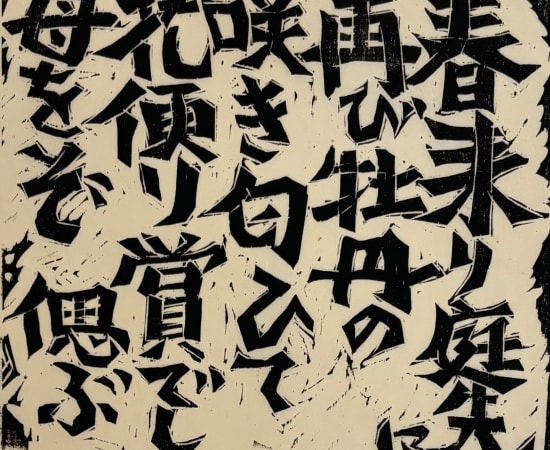 春来り庭先に
再び牡丹の
咲き匂ひて
花便り賞でし
母をぞ偲ぶ